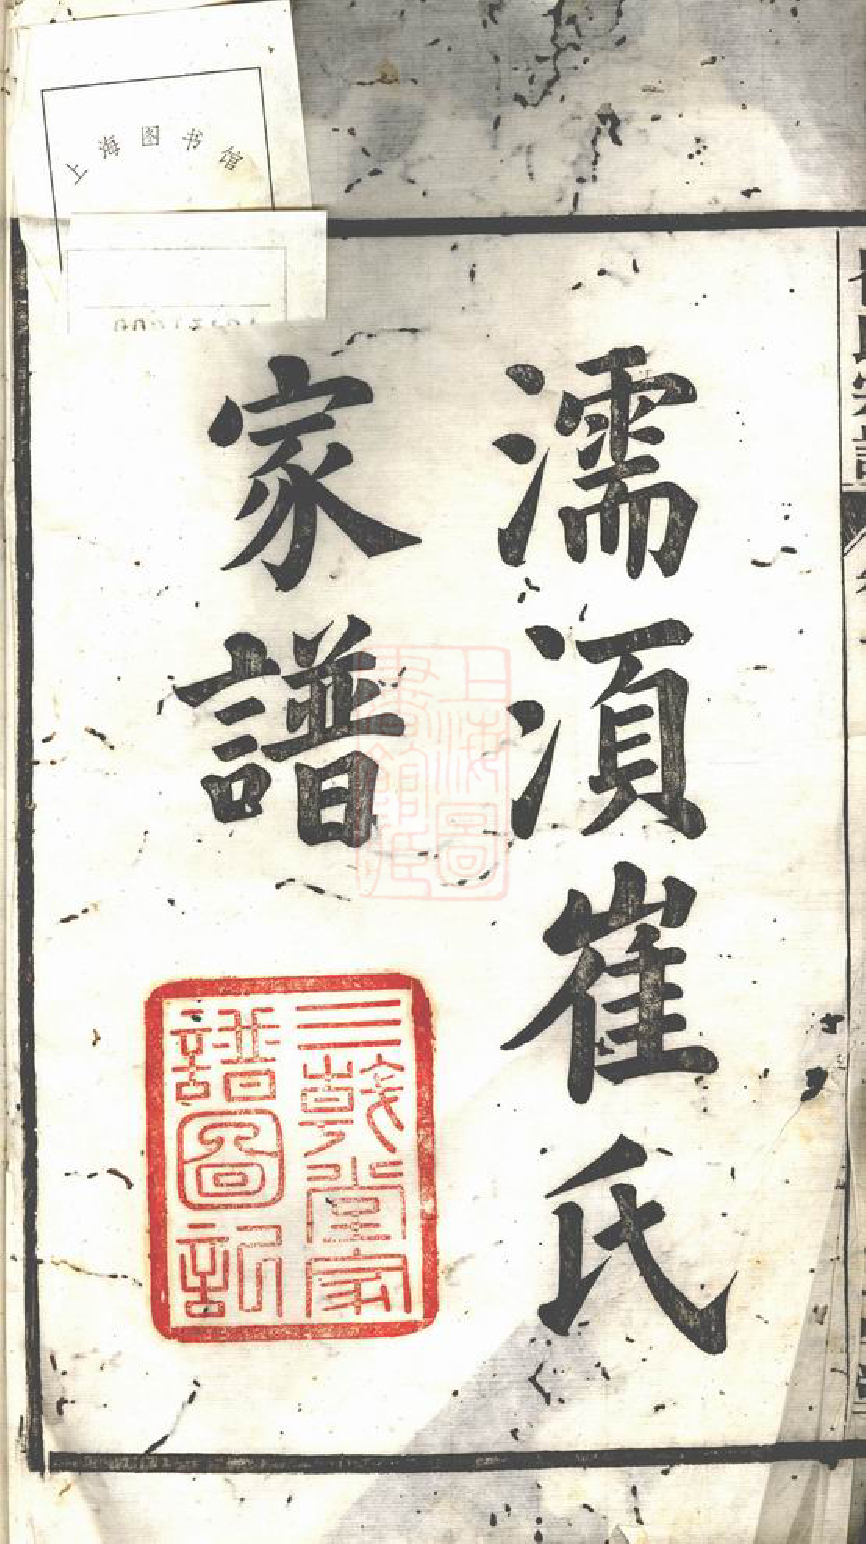 上海图书馆
濡湏崔氏
家譜
上海圖
書館藏
三戟堂家
譜圖記
氏宗譜